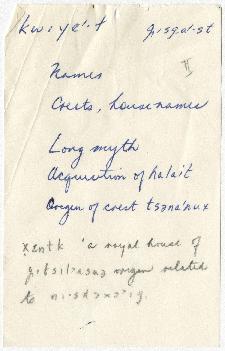 kwiye·t gisqa·st
II
Names
Crests, house names
Long myth
Acquisition of halait
Origen of crest tsəna'nux
xɛntk 'a royal house of
origen related
to